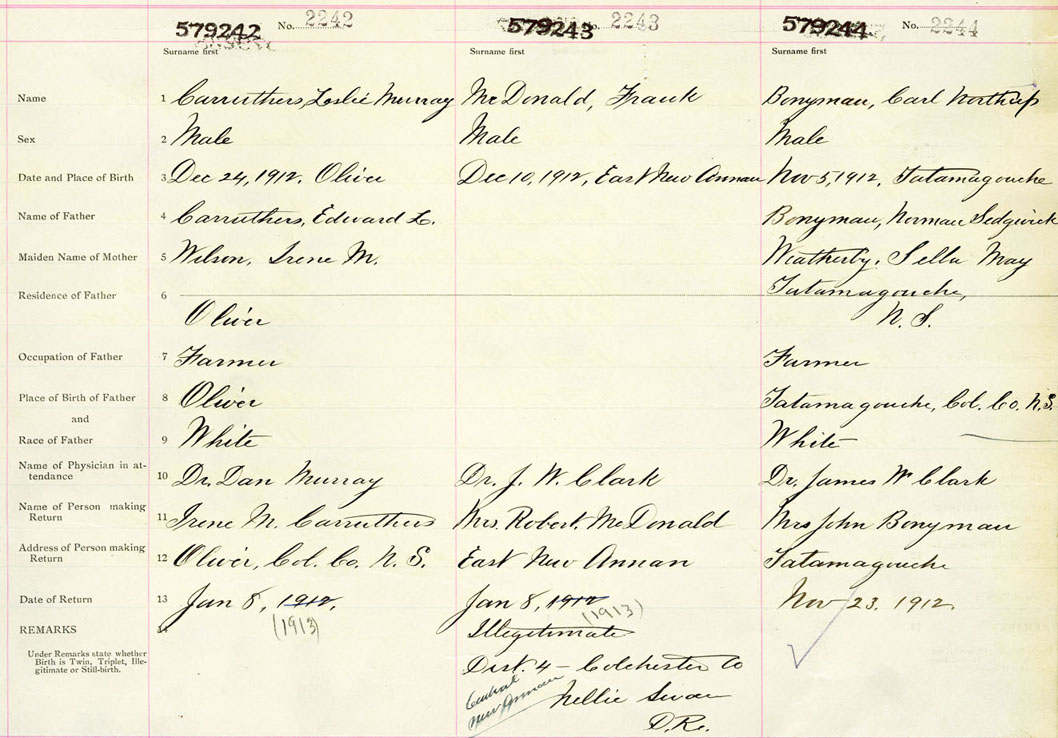 579242 No. 2242 579243 No. 2243 579244 No. 2244
Surname first Surname first Surname first
Name 1 Carruthers, Leslie Murray McDonald, Frank Bonyman, Carl Northup
Sex 2 Male Male Male
Date and Place of Birth 3 Dec 24, 1912. Oliver Dec 10, 1912, East New Annan Nov 5, 1912, Tatamagouche
Name of Father 4 Carruthers, Edward L. Bonyman, Norman Sedgwick
Maiden Name of Mother 5 Wilson, Irene M. Weatherby, Sella May
Residence of Father 6 Tatamagouche,
Oliver N. S.
Occupation of Father 7 Farmer Farmer
Place of Birth of Father 8 Oliver Tatamagouche, Col. Co. N.S.
and
Race of Father 9 White White
Name of Physician in at-
tendance 10 Dr. Dan Murray Dr. J. W. Clark Dr. James W Clark
Name of Person making
Return 11 Irene M. Carruthers Mrs. Robert McDonald Mrs John Bonyman
Address of Person making
Return 12 Oliver, Col. Co. N. S. East New Annan Tatamagouche
Date of Return 13 Jan 8, 1912, Jan 8, 1912 Nov 23, 1912.
(1913) (1913)
REMARKS 14 Illegitimate
Under Remarks state whether
Birth is Twin, Triplet, Ille-
gitimate or Still-birth.
Dist. 4 – Colchester Co
Central
New Annan
Nellie Swan
D.R.